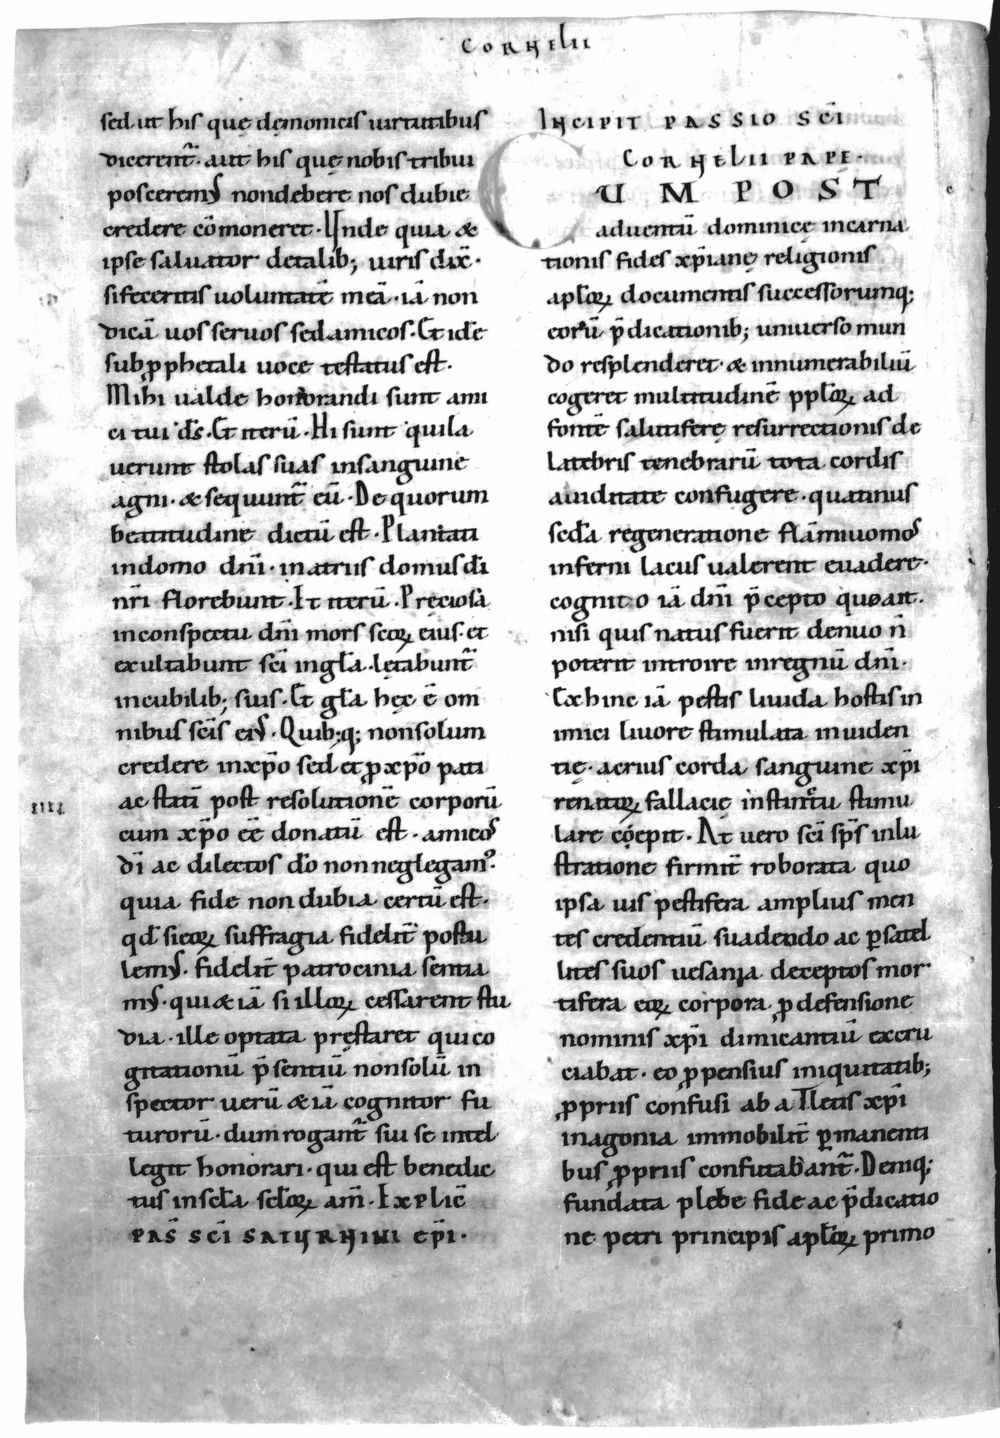 CORNELII
sed ut his quę demonicis uirtutibus
dicerent̄. aut his quę nobis tribui
poscerem⁹ non debere nos dubie
credere cōmoneret. Unde quia &
ipse saluator de talib; uiris dix̄.
si feceritis uoluntatē meā. iā non
dicā uos seruos sed amicos. Et idē
sub ꝓphetali uoce testatus est.
Mihi ualde honorandi sunt ami
ci tui d̄s. Et iterū. Hi sunt qui la
uerunt stolas suas in sanguine
agni. & sequunt̄ eū. De quorum
beatitudine dictū est. Plantati
in domo dn̄i. in atriis domus dī
nr̄i florebunt. It iterū. Preciosa
in conspectu dn̄i mors sc̄oꝝ eius. et
exultabunt sc̄i in gl̄a. lętabunt̄
in cubilib; suis. Et gl̄a hęc ē om
nibus sc̄is ei⁹. Quib; q; non solum
credere in xp̄o sed et ꝓ xp̄o pati
ac statī post resolutionē corporū
cum xp̄o eē donatū est. amicos
dī ac dilectos dō non neglegam⁹.
quia fide non dubia certū est.
qd̄ si eoꝝ suffragia fidelit̄ postu
lem⁹. fidelit̄ patrocinia sentia
m⁹. qui & iā si illoꝝ cessarent stu
dia. ille optata pręstaret qui co
gitationū p̄sentiū non solū in
spector uerū & iā cognitor fu
turorū. dum rogant̄ sui se intel
legit honorari. qui est benedic
tus in sc̄la scl̄oꝝ. am̄. Explic̄
PAS̄ SC̄I SATURNINI EP̄I.
INCIPIT PASSIO SC̄I
CORNELII PAPE.
CUM POST
aduentū dominicę incarna
tionis fides xp̄ianę religionis
apl̄oꝝ documentis successorumq;
eorū p̄dicationib; uniuerso mun
do resplenderet. & innumerabiliū
cogeret multitudinē ppl̄oꝝ ad
fontē salutiferę resurrectionis de
latebris tenebrarū tota cordis
auiditate confugere. quatinus
sed̄a regeneratione flāmiuomos
inferni lacus ualerent euadere.
cognito iā dn̄i p̄cepto quo ait.
nisi quis natus fuerit denuo n̄
poterit introire in regnū dn̄i.
Ex hinc iā pestis liuida hostis in
imici liuore stimulata inuiden
tię. acrius corda sanguine xp̄i
renatoꝝ fallacię instinctu stimu
lare cępit. At uero sc̄i sp̄s inlu
stratione firmit̄ roborata quo
ipsa uis pestifera amplius men
tes credentiū suadendo ac ꝑ satel
lites suos uesania deceptos mor
tifera eoꝝ corpora ꝓ defensione
nominis xp̄i dimicantiū excru
ciabat. eo ꝓpensius iniquitatib;
ꝓpriis confusi ab atletis xp̄i
in agonia immobilit̄ ꝑmanenti
bus ꝓpriis confutabant̄. Deniq;
fundata plebe fide ac p̄dicatio
ne petri principis apl̄oꝝ primo
IIII